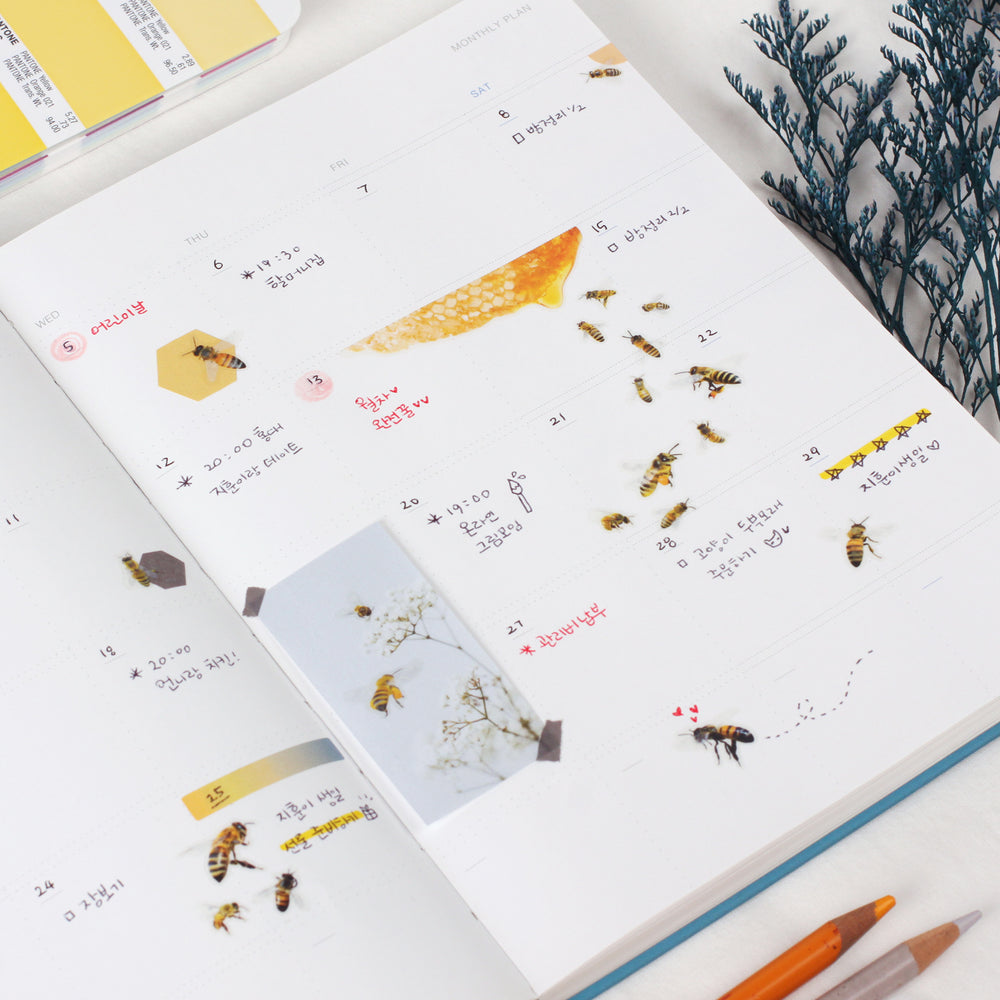 PANTONE
PANTONE Yellow
PANTONE Orange 021
PANTONE Trans. Wt.
5.27
.73
94.00
PANTONE Yellow
PANTONE Orange 021
PANTONE Trans. Wt.
2.89
.61
96.50
MONTHLY PLAN
WED
THU
FRI
SAT
5 어린이날
6
*19:30
할머니집
7
8
방정리 1/2
11
12
*20:00 홍대
지훈이랑 데이트
13
월차♥
완전꿀♥♥
15
방정리 2/2
18
*20:00
언니랑 치킨!
20
*19:00
온라인
그림모임
21
22
24
장보기
25
지훈이 생일
선물 준비하기
27
*관리비납부
28
고양이 두부모래
주문하기
29
☆☆☆☆☆
지훈이생일♡